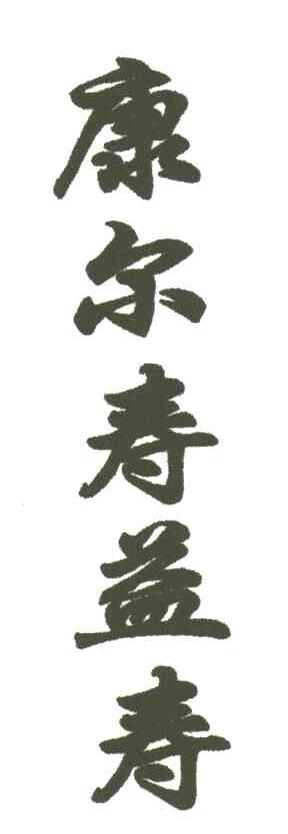 康尔寿益寿